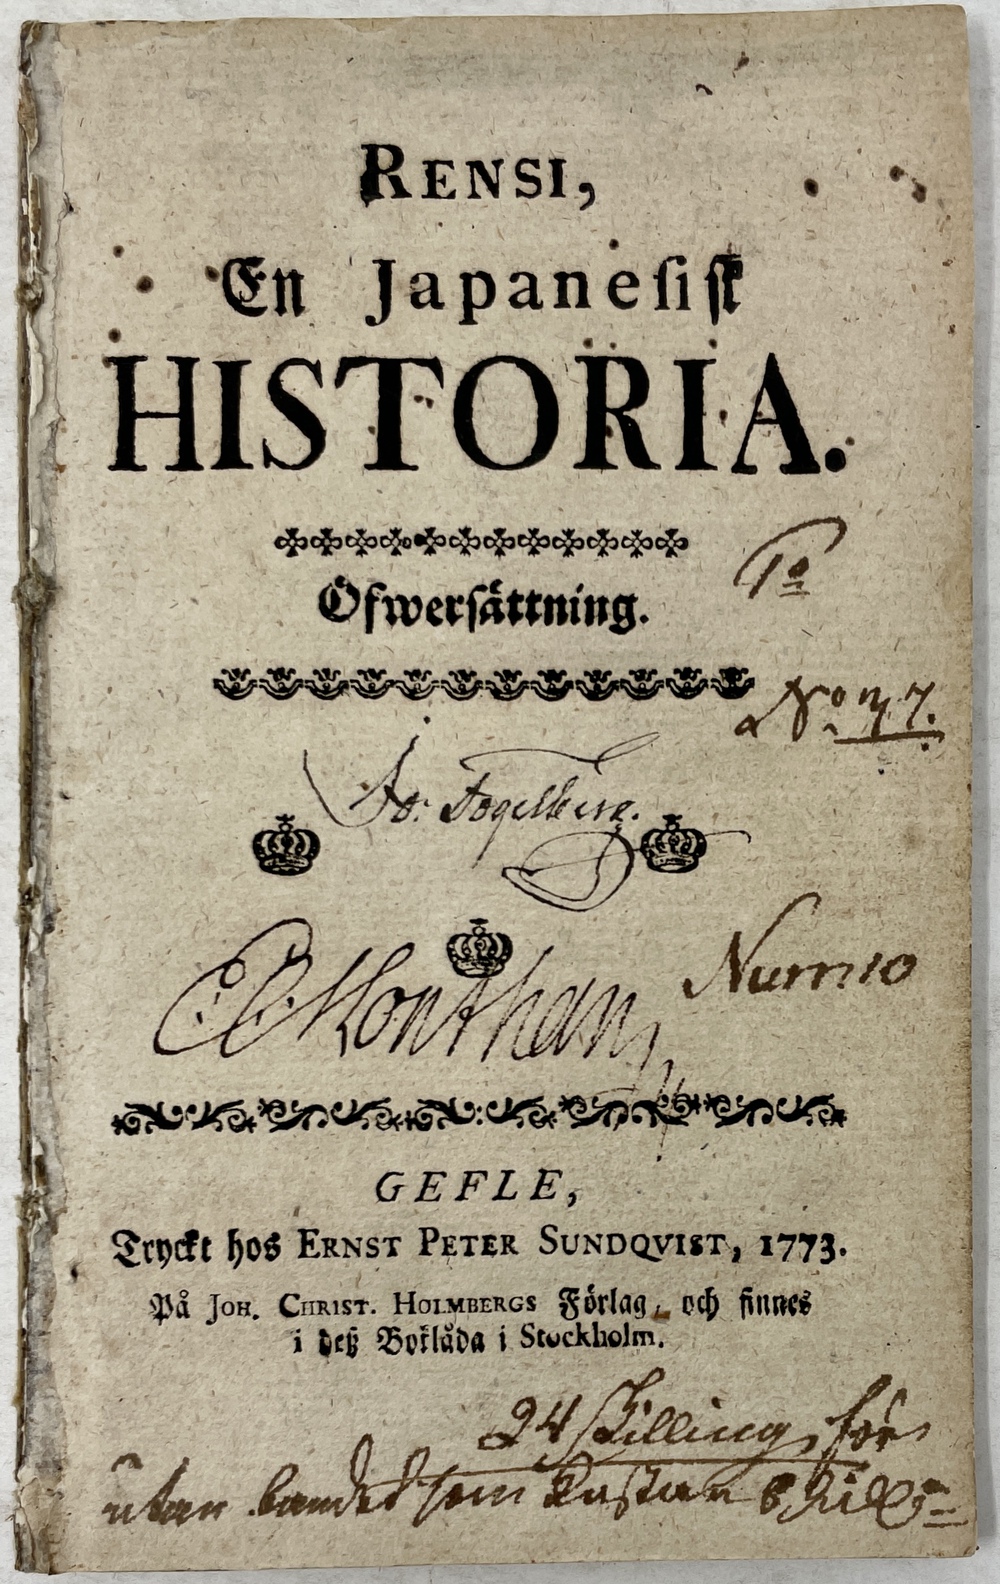 RENSI,
En Japanesisk
HISTORIA.
Öfwersättning.
No
Fogelberg.
Num 10
GEFLE,
Tryckt hos ERNST PETER SUNDQVIST, 1773.
På JOH. CHRIST. HOLMBERGS Förlag, och finnes
i deß Boklåda i Stockholm.
24 skilling för
utan bandet som kostar 8